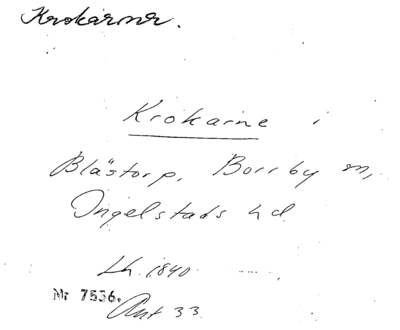 Krokarne.
Krokarne i
Blästorp, Borrby m,
Ingelstads hd
Lh. 1840
Nr 7556.
Ant 33